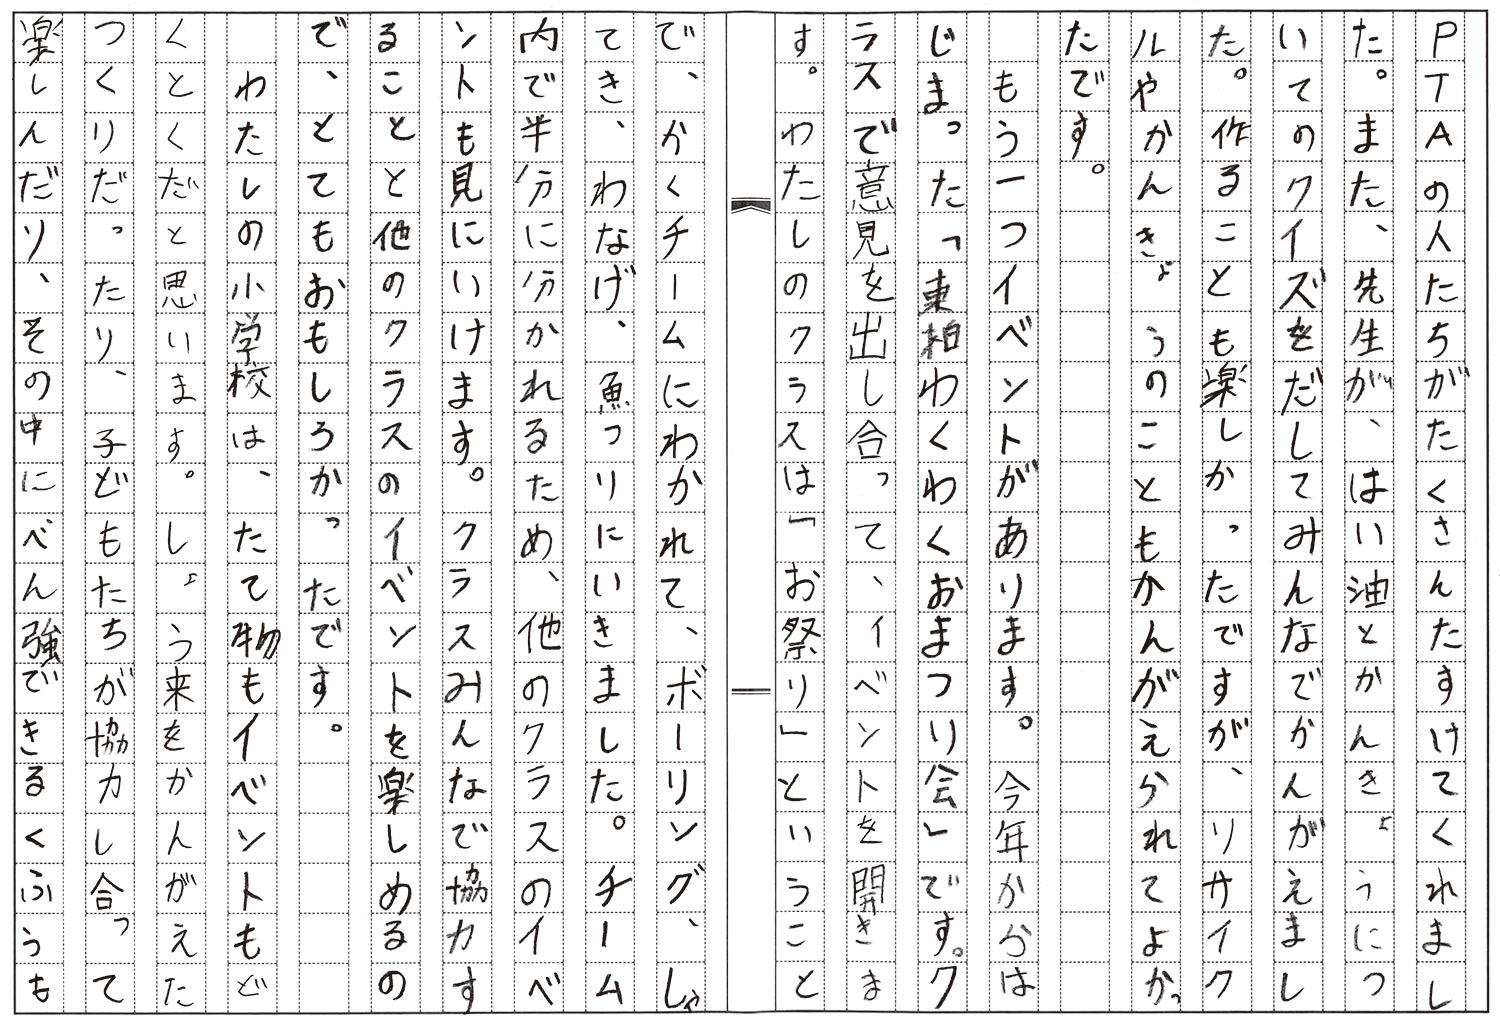 PTAの人たちがたくさんたすけてくれまし
た。また、先生が、はい油とかんきょうにつ
いてのクイズをだしてみんなでかんがえまし
た。作ることも楽しかったですが、リサイク
ルやかんきょうのこともかんがえられてよかっ
たです。
もう一つイベントがあります。今年からは
じまった「東柏わくわくおまつり会」です。ク
ラスで意見を出し合って、イベントを開きま
す。わたしのクラスは「お祭り」ということ
で、かくチームにわかれて、ボーリング、しゃ
てき、わなげ、魚つりにいきました。チーム
内で半分に分かれるため、他のクラスのイベ
ントも見にいけます。クラスみんなで協力す
ることと他のクラスのイベントを楽しめるの
で、とてもおもしろかったです。
わたしの小学校は、たて物もイベントもど
くとくだと思います。しょう来をかんがえた
つくりだったり、子どもたちが協力し合って
楽しんだり、その中にべん強できるくふうも